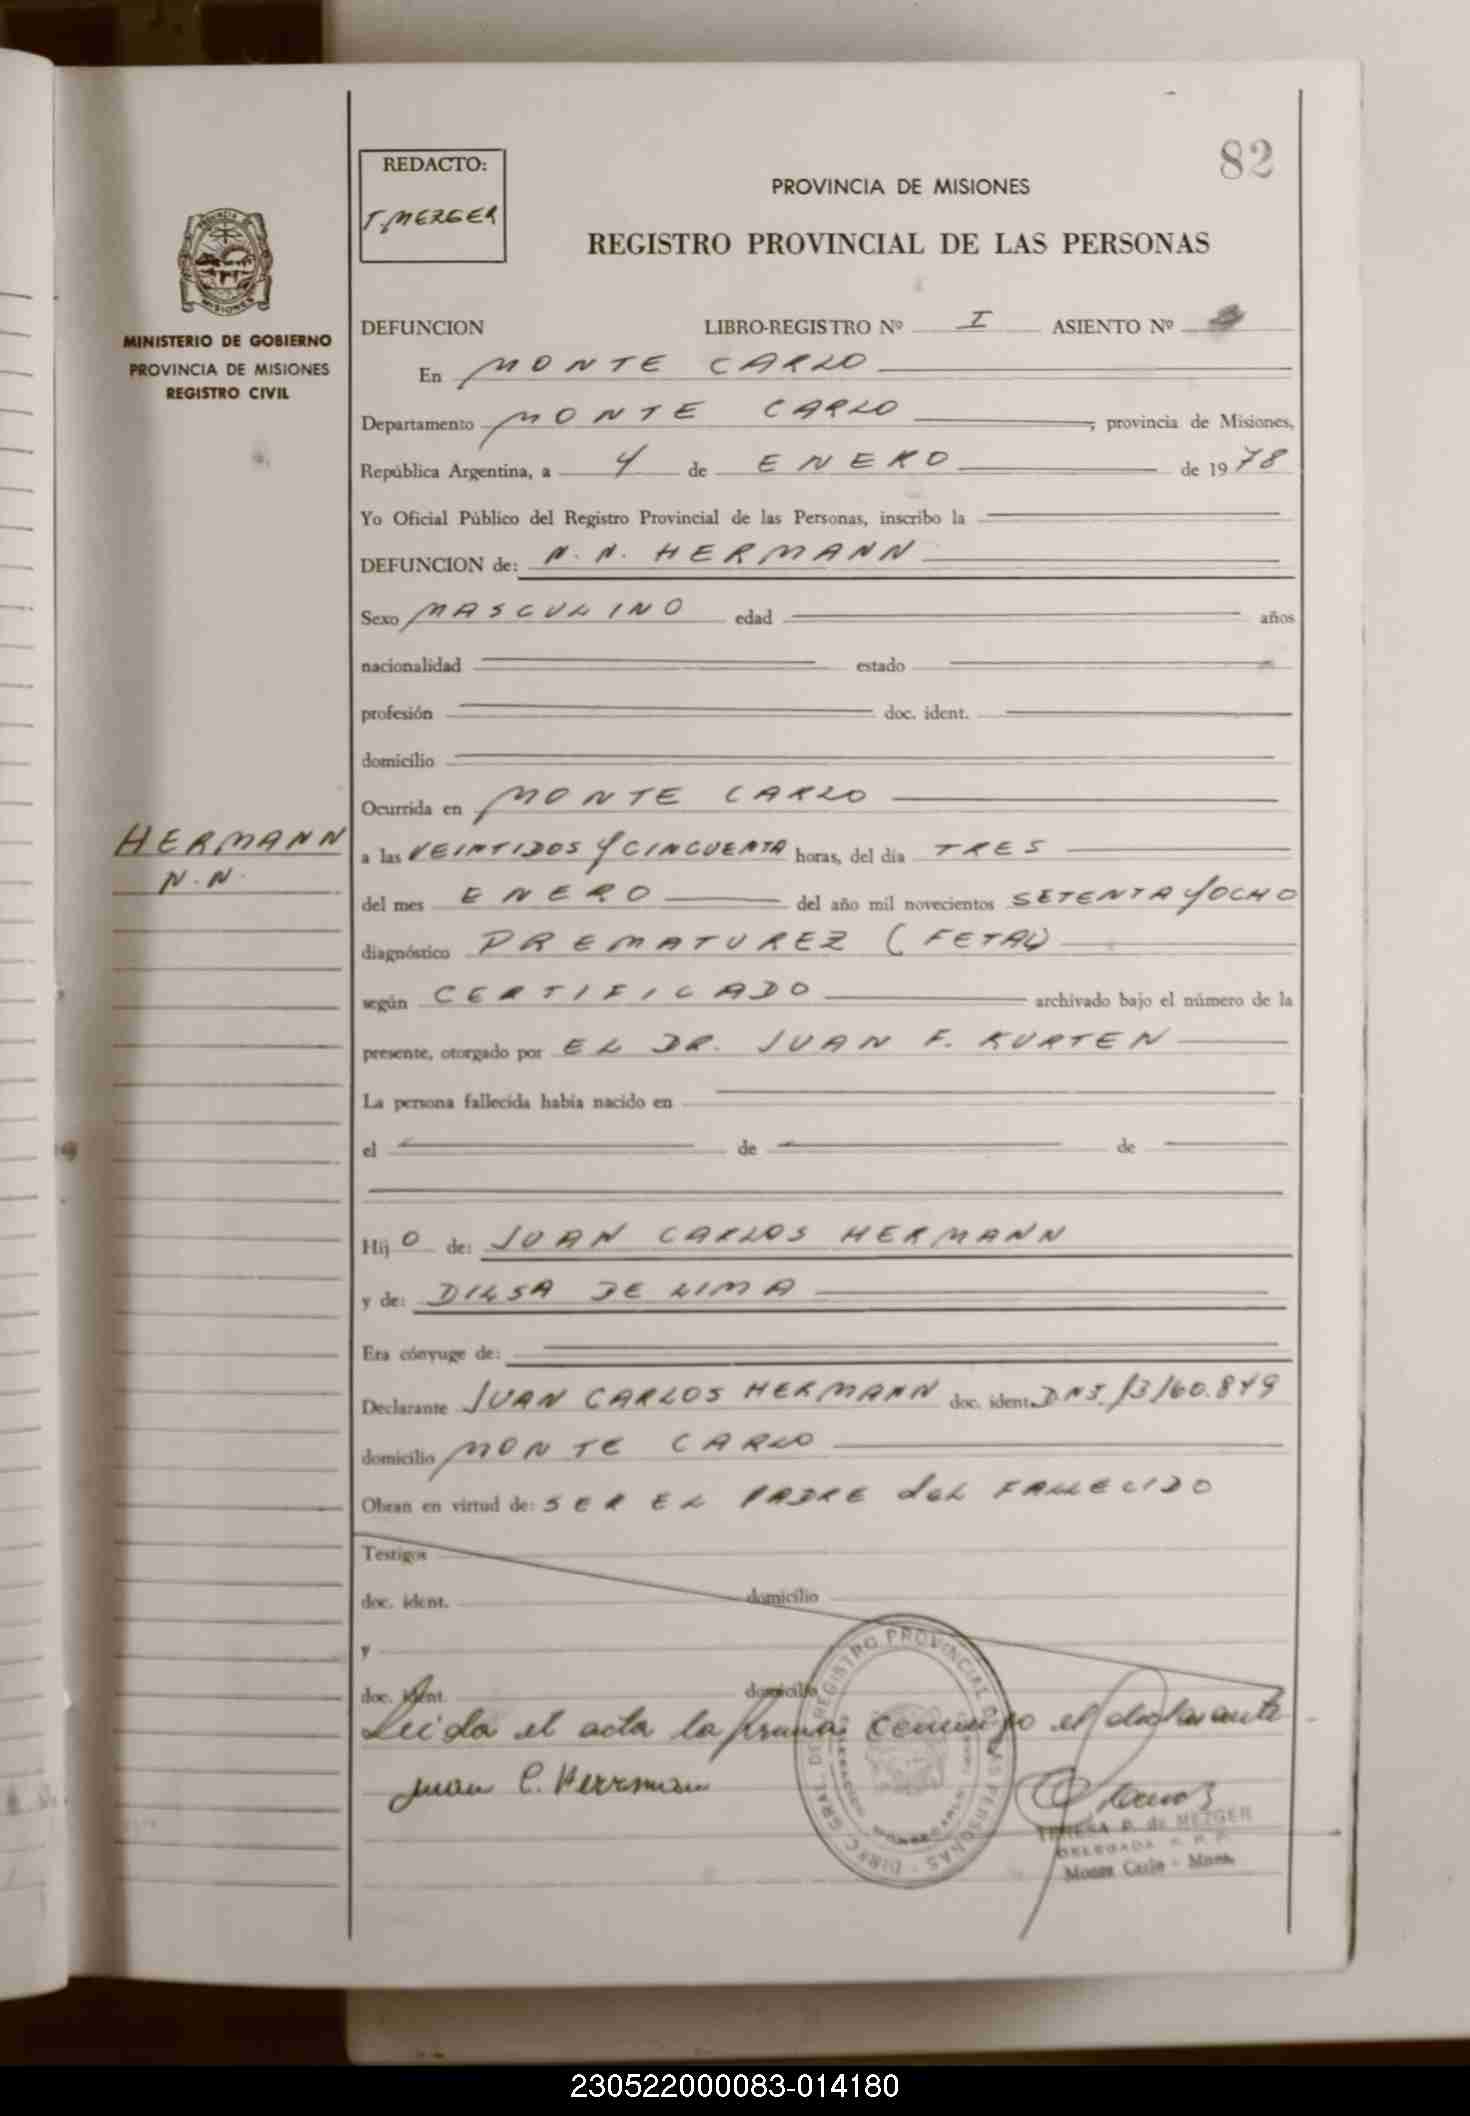 82
REDACTO:
T. MEZGER
PROVINCIA DE MISIONES
REGISTRO PROVINCIAL DE LAS PERSONAS
MINISTERIO DE GOBIERNO
PROVINCIA DE MISIONES
REGISTRO CIVIL
DEFUNCION LIBRO-REGISTRO Nº I ASIENTO Nº
En MONTE CARLO
Departamento MONTE CARLO, provincia de Misiones,
República Argentina, a 4 de ENERO de 1978
Yo Oficial Público del Registro Provincial de las Personas, inscribo la
DEFUNCION de: N. N. HERMANN
Sexo MASCULINO edad años
nacionalidad estado
profesión doc. ident.
domicilio
Ocurrida en MONTE CARLO
HERMANN
N.N.
a las VEINTIDOS Y CINCUENTA horas, del día TRES
del mes ENERO del año mil novecientos SETENTA Y OCHO
diagnóstico PREMATUREZ (FETAL)
según CERTIFICADO archivado bajo el número de la
presente, otorgado por EL DR. JUAN F. KURTEN
La persona fallecida había nacido en
el de de
Hijo de: JUAN CARLOS HERMANN
y de: DILSA DE LIMA
Era cónyuge de:
Declarante JUAN CARLOS HERMANN doc. ident. DNI. 13160.849
domicilio MONTE CARLO
Obran en virtud de: SER EL PADRE del FALLECIDO
Testigos
doc. ident. domicilio
y
doc. ident. domicilio
Leida el acta la firma conmigo el declarante
Juan C. Herrman
DIREC. GRAL. DEL REGISTRO PROVINCIAL DE LAS PERSONAS
TERESA P. de MEZGER
DELEGADA R. P. P.
Monte Carlo - Mnes.
230522000083-014180